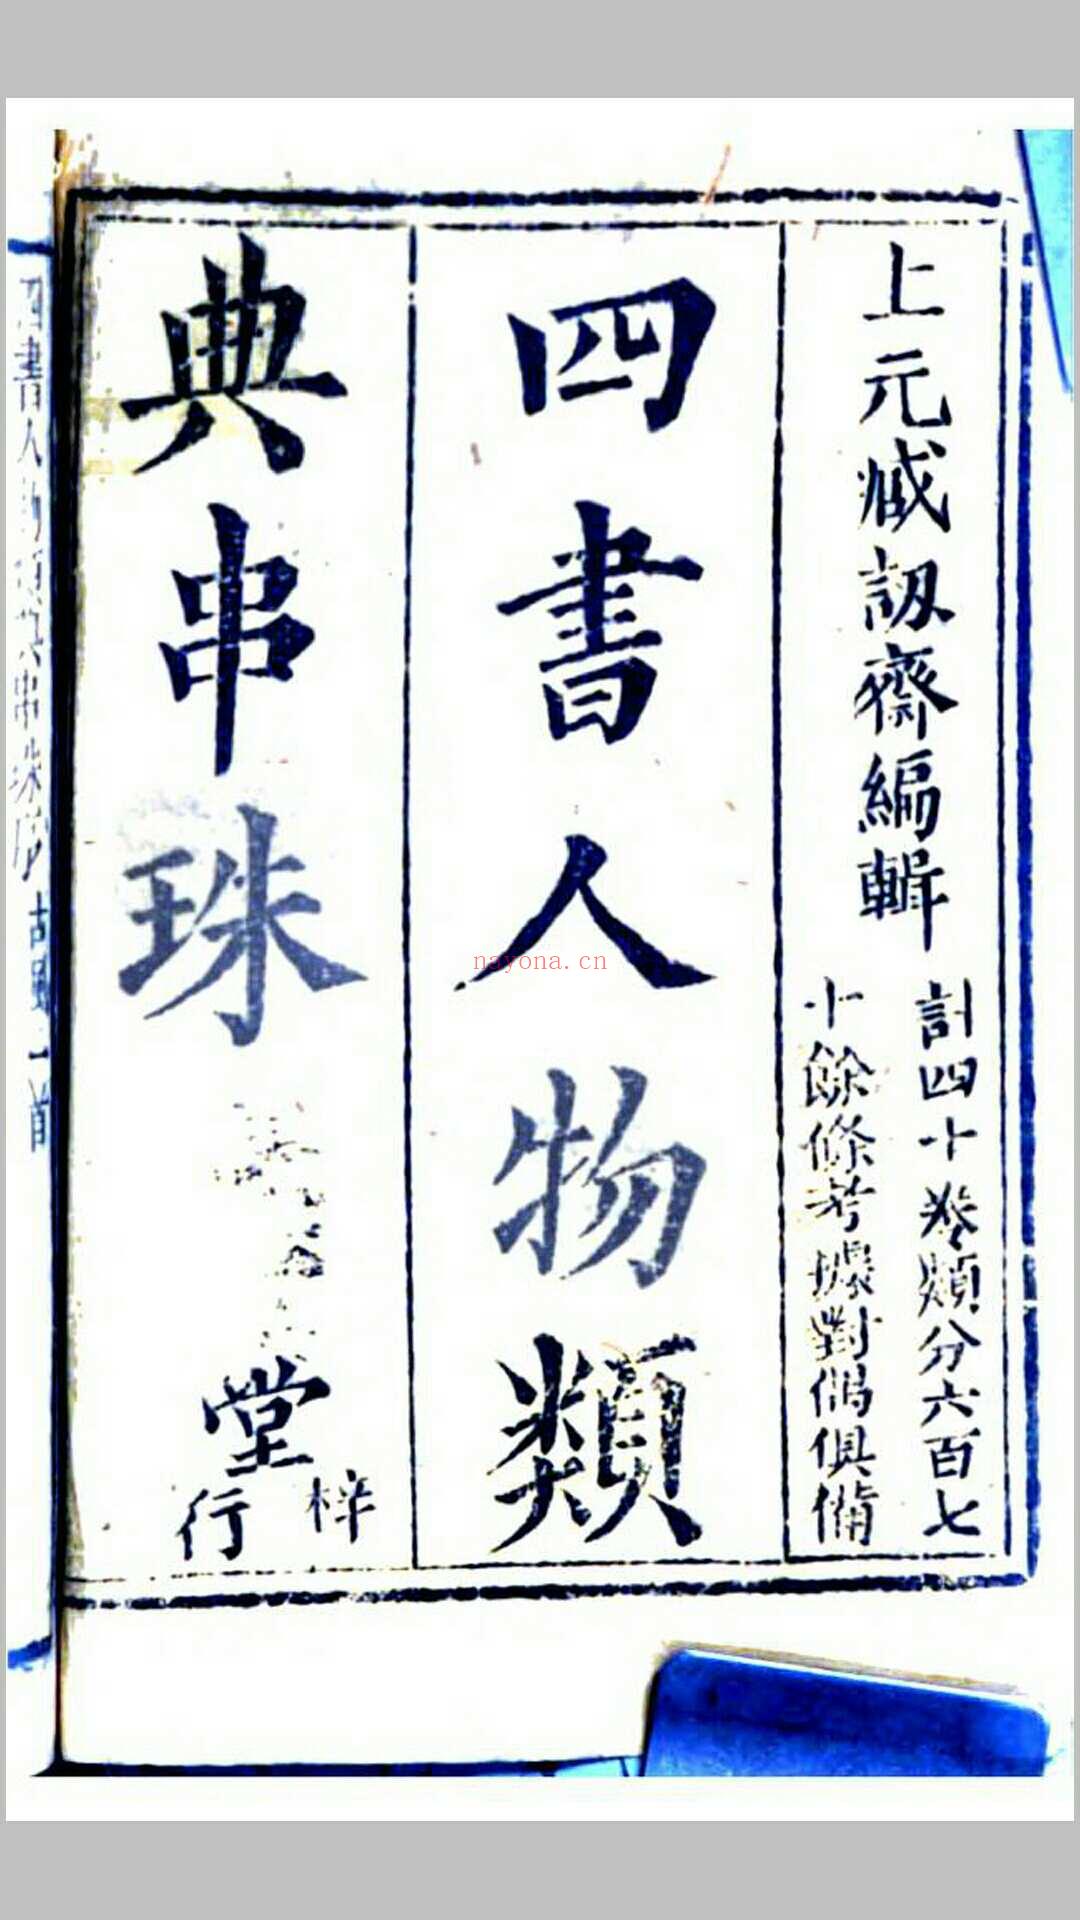 上元臧訒齋編輯
計四十卷類分六百七
十餘條考據對偶俱備
四書人物類
典串珠
堂
梓
行
四書人物類典串珠序
nayona.cn